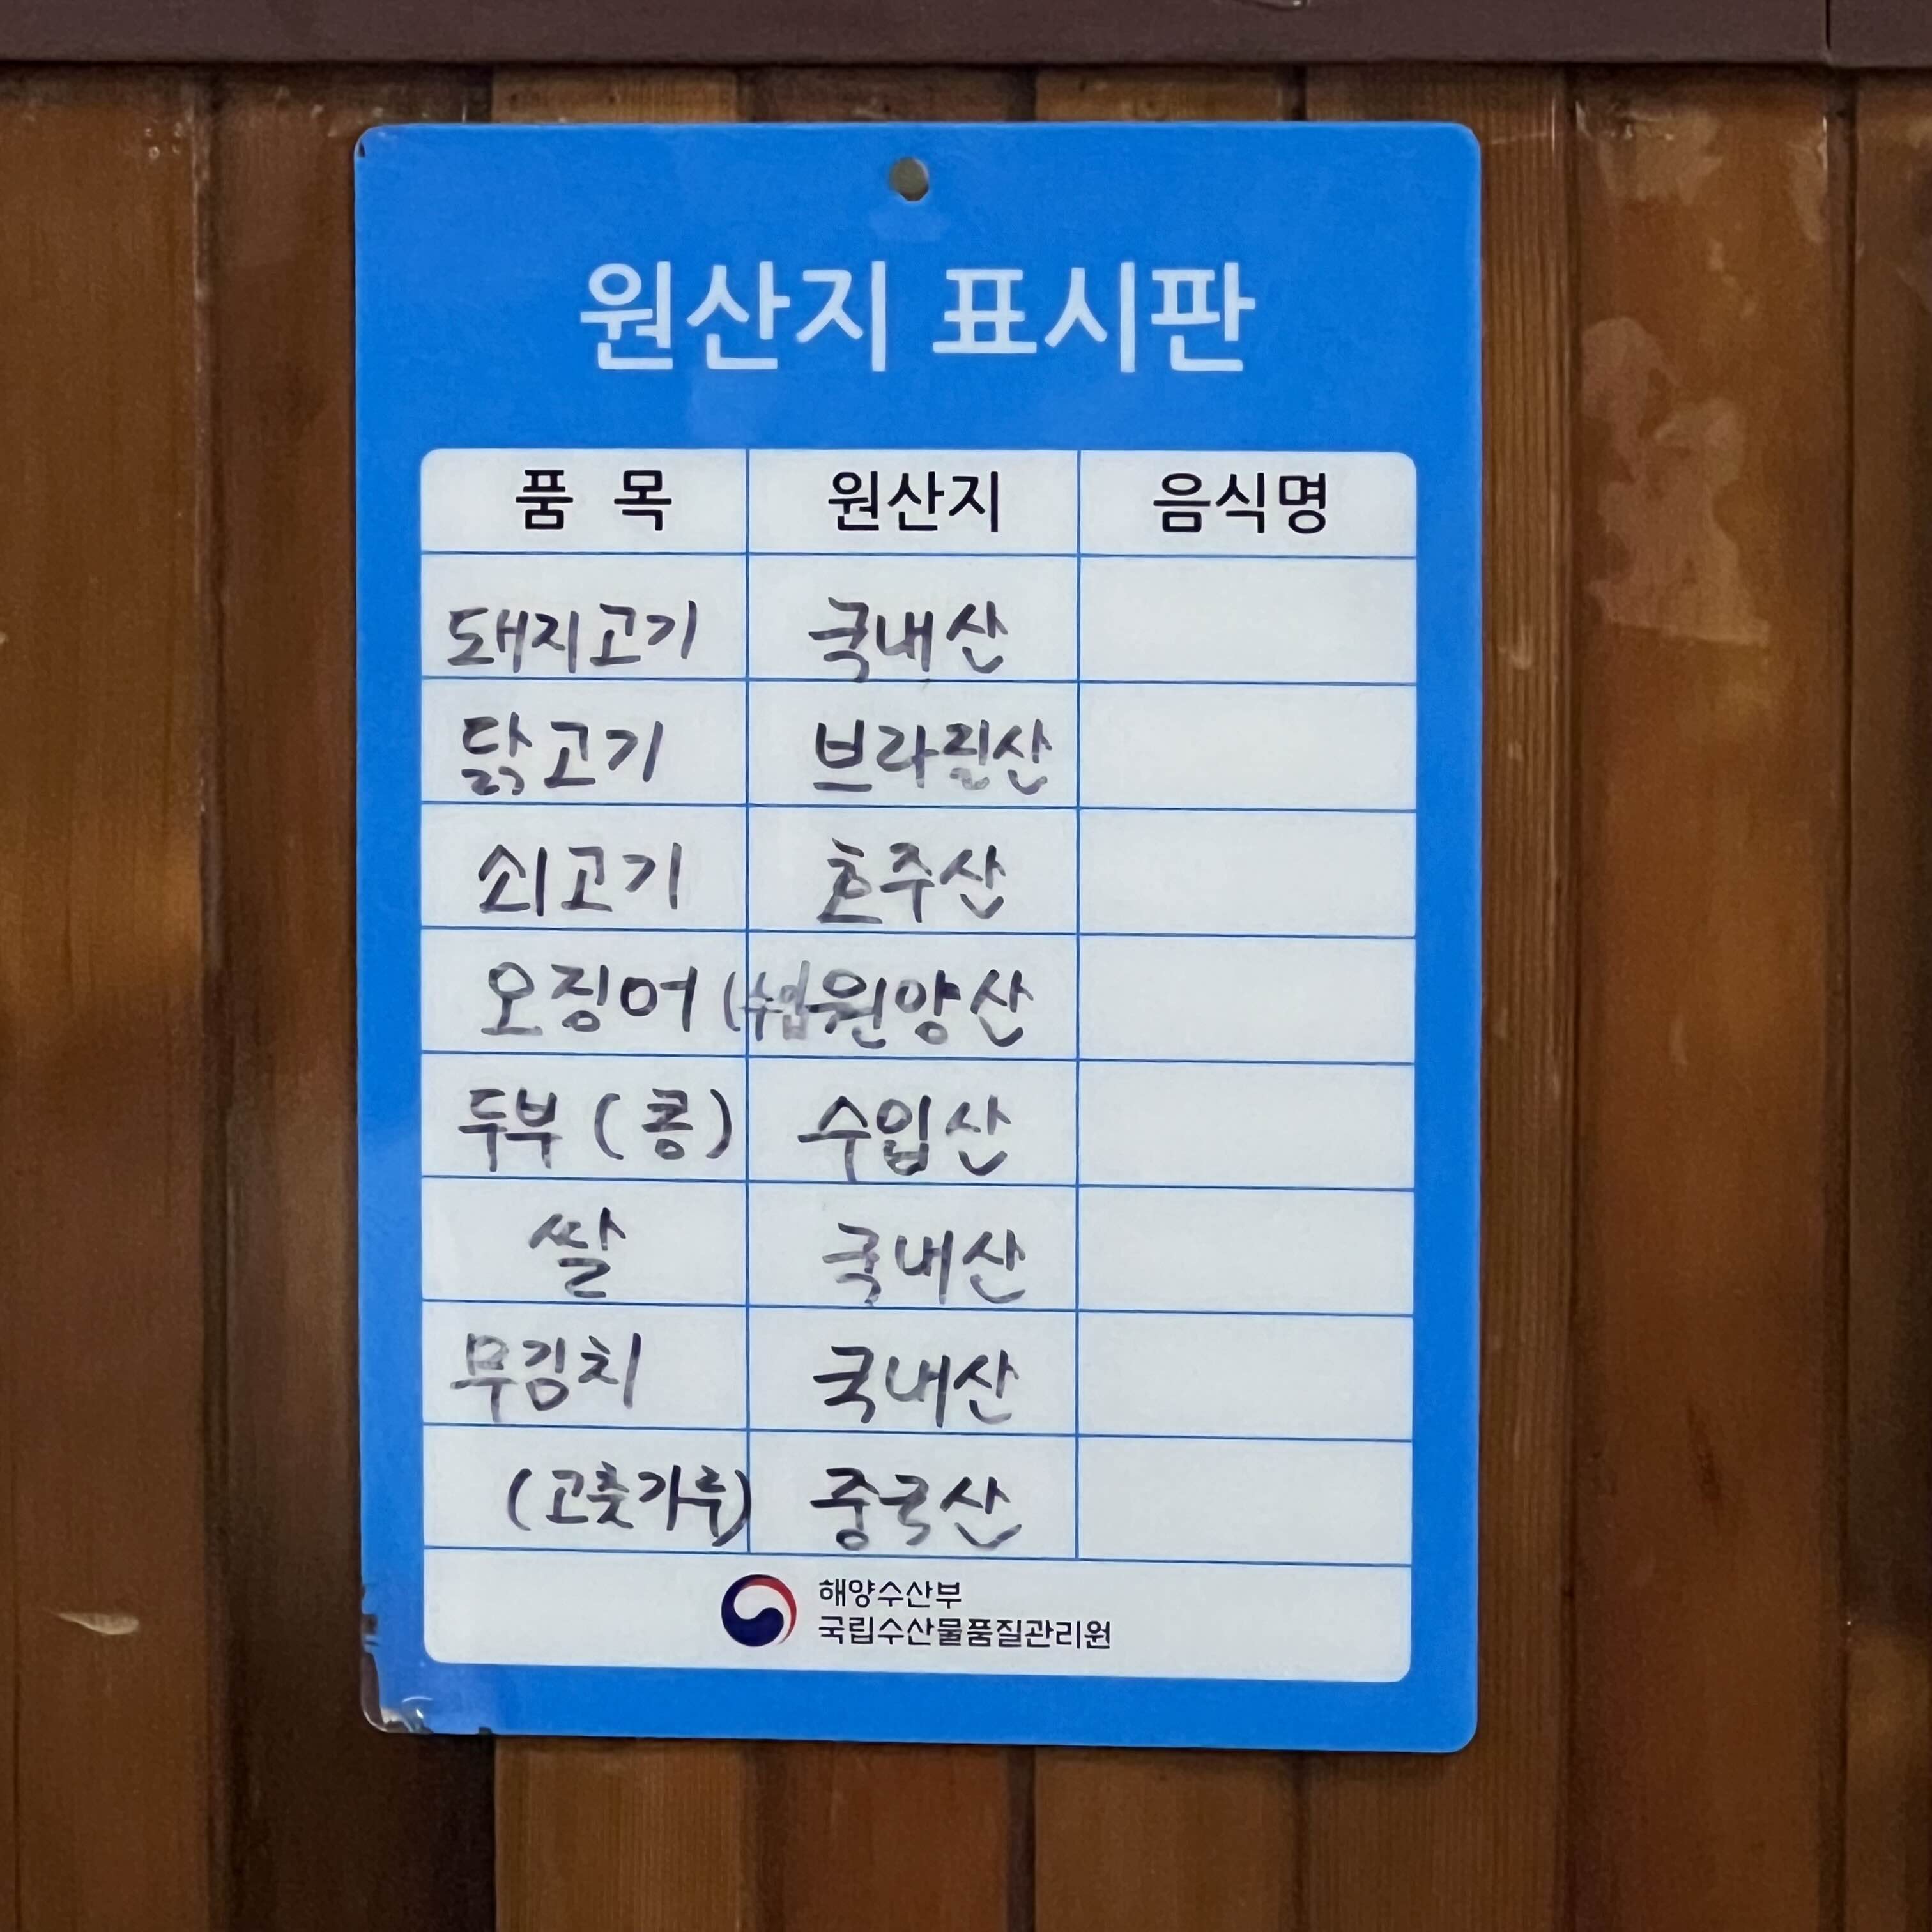 원산지 표시판
품 목 원산지 음식명
돼지고기 국내산
닭고기 브라질산
쇠고기 호주산
오징어 (수입 원양산
두부 (콩) 수입산
쌀 국내산
무김치 국내산
(고춧가루) 중국산
해양수산부
국립수산물품질관리원